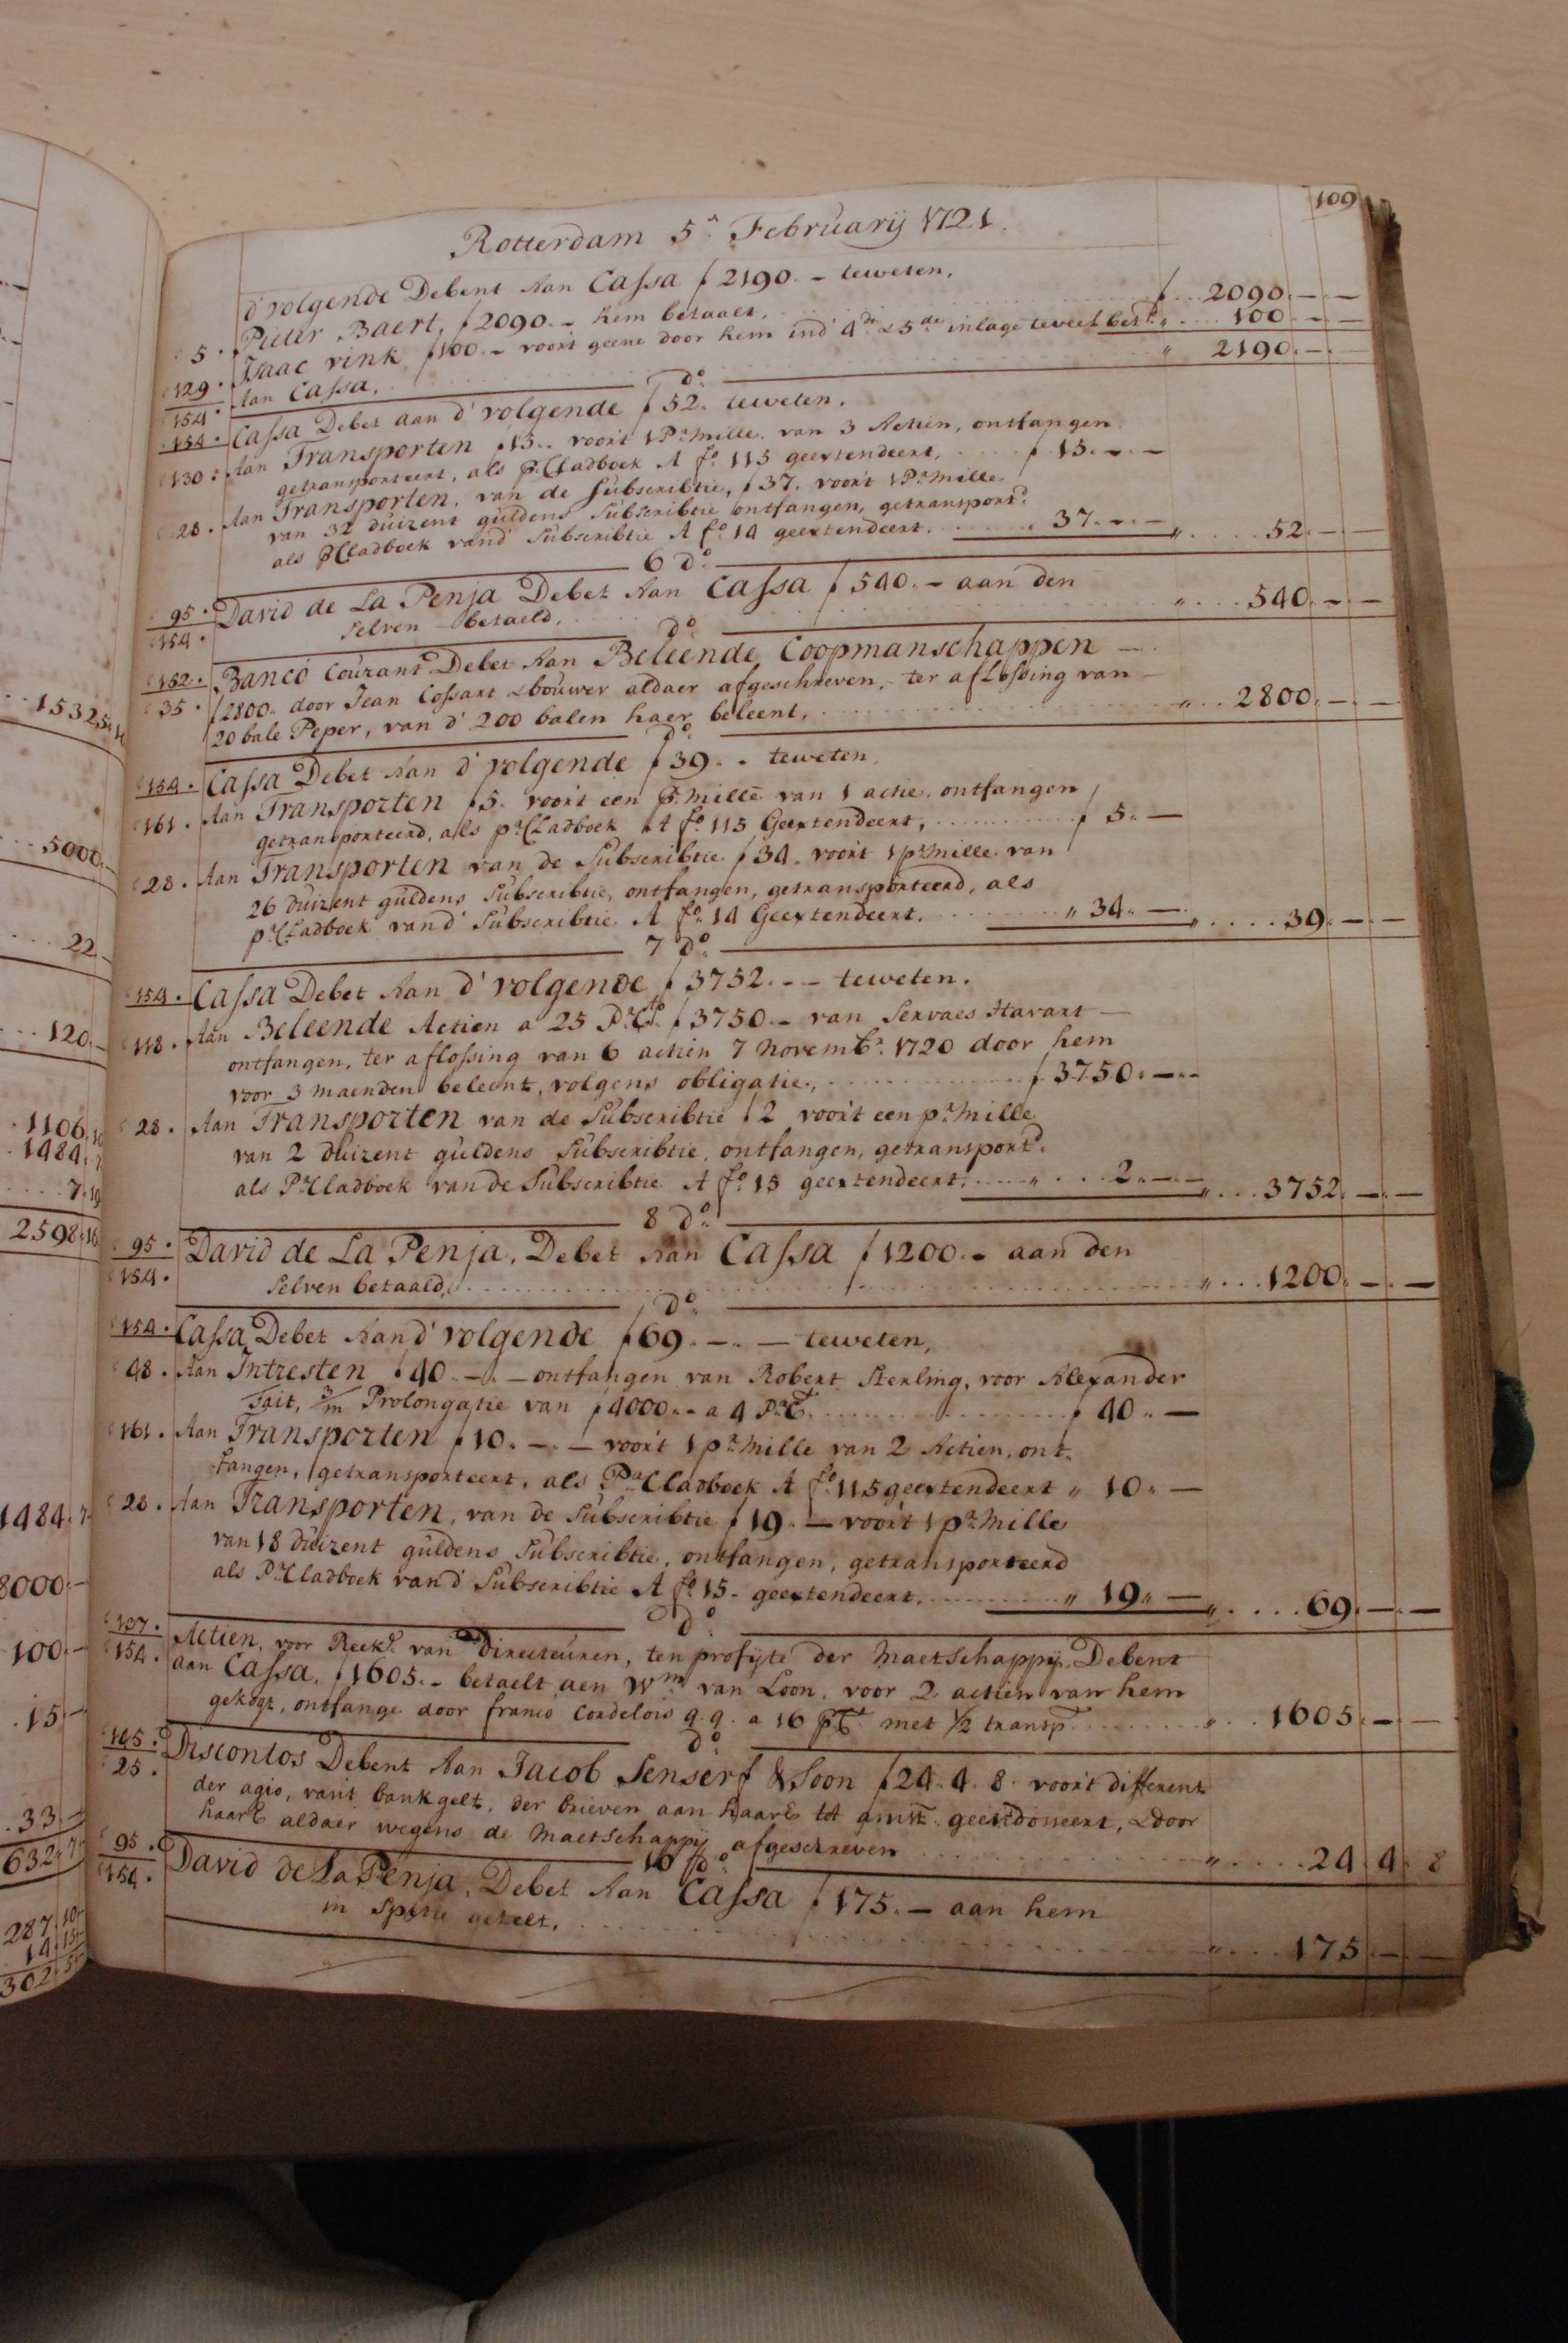 109
Rotterdam 5.ᵃ February 1721.
d'volgende Debent Aan Cassa ƒ 2190.- teweten,
5. Pieter Baert, ƒ 2090.- hem betaalt, ƒ 2090.—.—
129. Isaac vink ƒ 100.- voor't geene door hem ind' 4.de & 5.de inlage teveel bet.t „ 100.—.—
154. Aan Cassa, „ 2190.—.—
d.o
154. Cassa Debet aan d'volgende ƒ 52. teweten.
130. Aan Transporten ƒ 15.. voor't 1 P.r mille. van 3 Actien, ontfangen
getransporteert, als P. Cladboek A f.o 115 geextendeert, ƒ 15.-.—
28. Aan Transporten, van de Subscribtie, ƒ 37. voor't 1 P.r mille
van 32 duizent guldens Subscribtie ontfangen, getransport.d
als P Cladboek vand' Subscribtie A f.o 14 geextendeert. „ 37.-.— „ 52.—.—
6 d.o
95. David de La Penja Debet Aan Cassa ƒ 540.- aan den
154. Selven betaeld, „ 540.—.—
d.o
152. Banco Courant Debet Aan Beleende Coopmanschappen —
35. ƒ 2800. door Jean Cossart & bouwer aldaer afgeschreven, ter aflossing van
20 bale Peper, van d' 200 balen haer beleent, „ 2800.—.—
d.o
154. Cassa Debet Aan d'volgende ƒ 39.- teweten,
161. Aan Transporten ƒ 5. voor't een P. mille van 1 actie, ontfangen
getransporteerd, als p.r Cladboek A f.o 115 Geextendeert, ƒ 5.. —
28. Aan Transporten van de Subscribtie ƒ 34. voor't 1 p.r mille van
26 duizent guldens Subscribtie, ontfangen, getransporteerd, als
p.r Cladboek vand' Subscribtie A f.o 14 Geextendeert. „ 34.. — „ 39.—.—
7 d.o
154. Cassa Debet Aan d'volgende ƒ 3752.-- teweten.
118. Aan Beleende Actien a 25 P.r C.to ƒ 3750.- van Servaes Havart —
ontfangen, ter aflossing van 6 actien 7 Novemb.r 1720 door hem
voor 3 maenden beleent, volgens obligatie, ƒ 3750.—.-
28. Aan Transporten van de Subscribtie ƒ 2 voor't een p.r mille
van 2 duizent guldens Subscribtie, ontfangen, getransport.d
als P.r Cladboek van de Subscribtie A f.o 15 geextendeert, „ 2.—.— „ 3752.—.—
8 d.o
95. David de La Penja, Debet Aan Cassa ƒ 1200.- aan den
154. Selven betaald, „ 1200.—.—
d.o
154. Cassa Debet Aan d'volgende ƒ 69.—.— teweten,
48. Aan Intresten ƒ 40.—.— ontfangen van Robert Sterling, voor Alexander
Tait, 3/m Prolongatie van ƒ 4000.- a 4 P.r C.t ƒ 40.. —
161. Aan Transporten ƒ 10.—.— voor't 1 p.r mille van 2 Actien, ont-
fangen, getransporteert, als P.r Cladboek A f.o 115 geextendeert „ 10.. —
28. Aan Transporten, van de Subscribtie ƒ 19.— voor't 1 p.r mille
van 18 duizent guldens Subscribtie, ontfangen, getransporteerd
als P.r Cladboek vand' Subscribtie A f.o 15- geextendeert. „ 19.. — „ 69.—.—
d.o
137. Actien, voor Reek.g van Directeuren, ten profijte der Maetschappij, Debent
154. aan Cassa, ƒ 1605.- betaelt aen W.m van Loon, voor 2 actien van hem
gekogt, ontfange door franco Cordelois q.q. a 16 P C.t met 1/2 transp.t „ 1605.—.—
d.o
105. Discontos Debent Aan Jacob Senserf & Soon ƒ 24.4.8. voor't different
25. der agio, van't bankgelt, der brieven aan haarE tot amst. geendosseert, & door
haarE aldaer wegens de Maetschappij afgeschreven „ 24.4.8
10 d.o
95. David de La Penja, Debet Aan Cassa ƒ 175.— aan hem
154. in Spetie getelt, „ 175.—.—
1532
5000.
22.
120.
1106
1484.
7.19
2598.
1484.7
8000.—
100.—
15.—
33.—
632.7
287.10
14.15
302.5